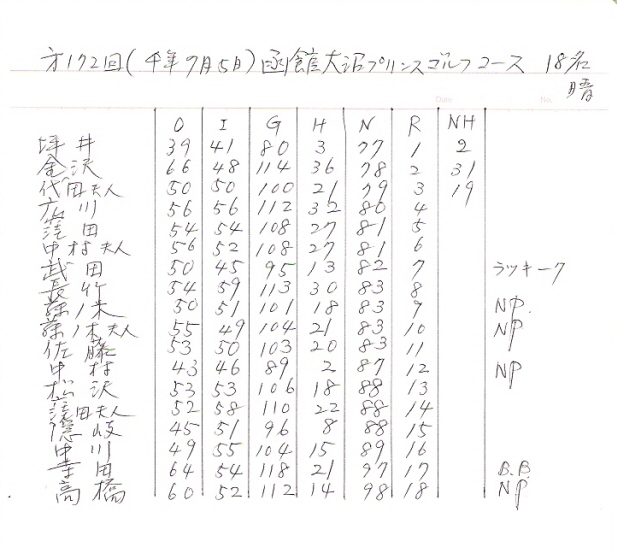 才172回(千年7月5日)函館大沼プリンスゴルフコース 18名
晴
Date No.
O I G H N R NH
坪井 39 41 80 3 77 1 2
金沢 66 48 114 36 78 2 31
代田夫人 50 50 100 21 79 3 19
川 56 56 112 32 80 4
田 54 54 108 27 81 5
中村夫人 56 52 108 27 81 6
武田 50 45 95 13 82 7 ラッキー7
長竹 54 59 113 30 83 8
藤ノ木 50 51 101 18 83 9 NP.
藤ノ木夫人 55 49 104 21 83 10 NP
佐藤 53 50 103 20 83 11
中村 43 46 89 2 87 12 NP
松沢 53 53 106 18 88 13
田夫人 52 58 110 22 88 14
隠岐 45 51 96 8 88 15
中川 49 55 104 15 89 16
寺田 64 54 118 21 97 17 B.B.
高橋 60 52 112 14 98 18 NP